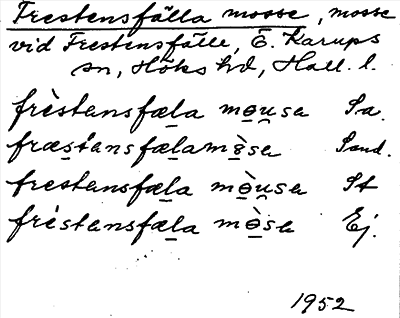 Frestensfälla mosse, mosse
vid Frestensfälle, Ö. Karups
sn, Höks hd, Hall. l.
frèstansfæla mo̲u̲sa Sa.
fræstansfælamòsa Sand.
frestansfæla mòusa St
frèstansfæla mòsa Ej.
1952